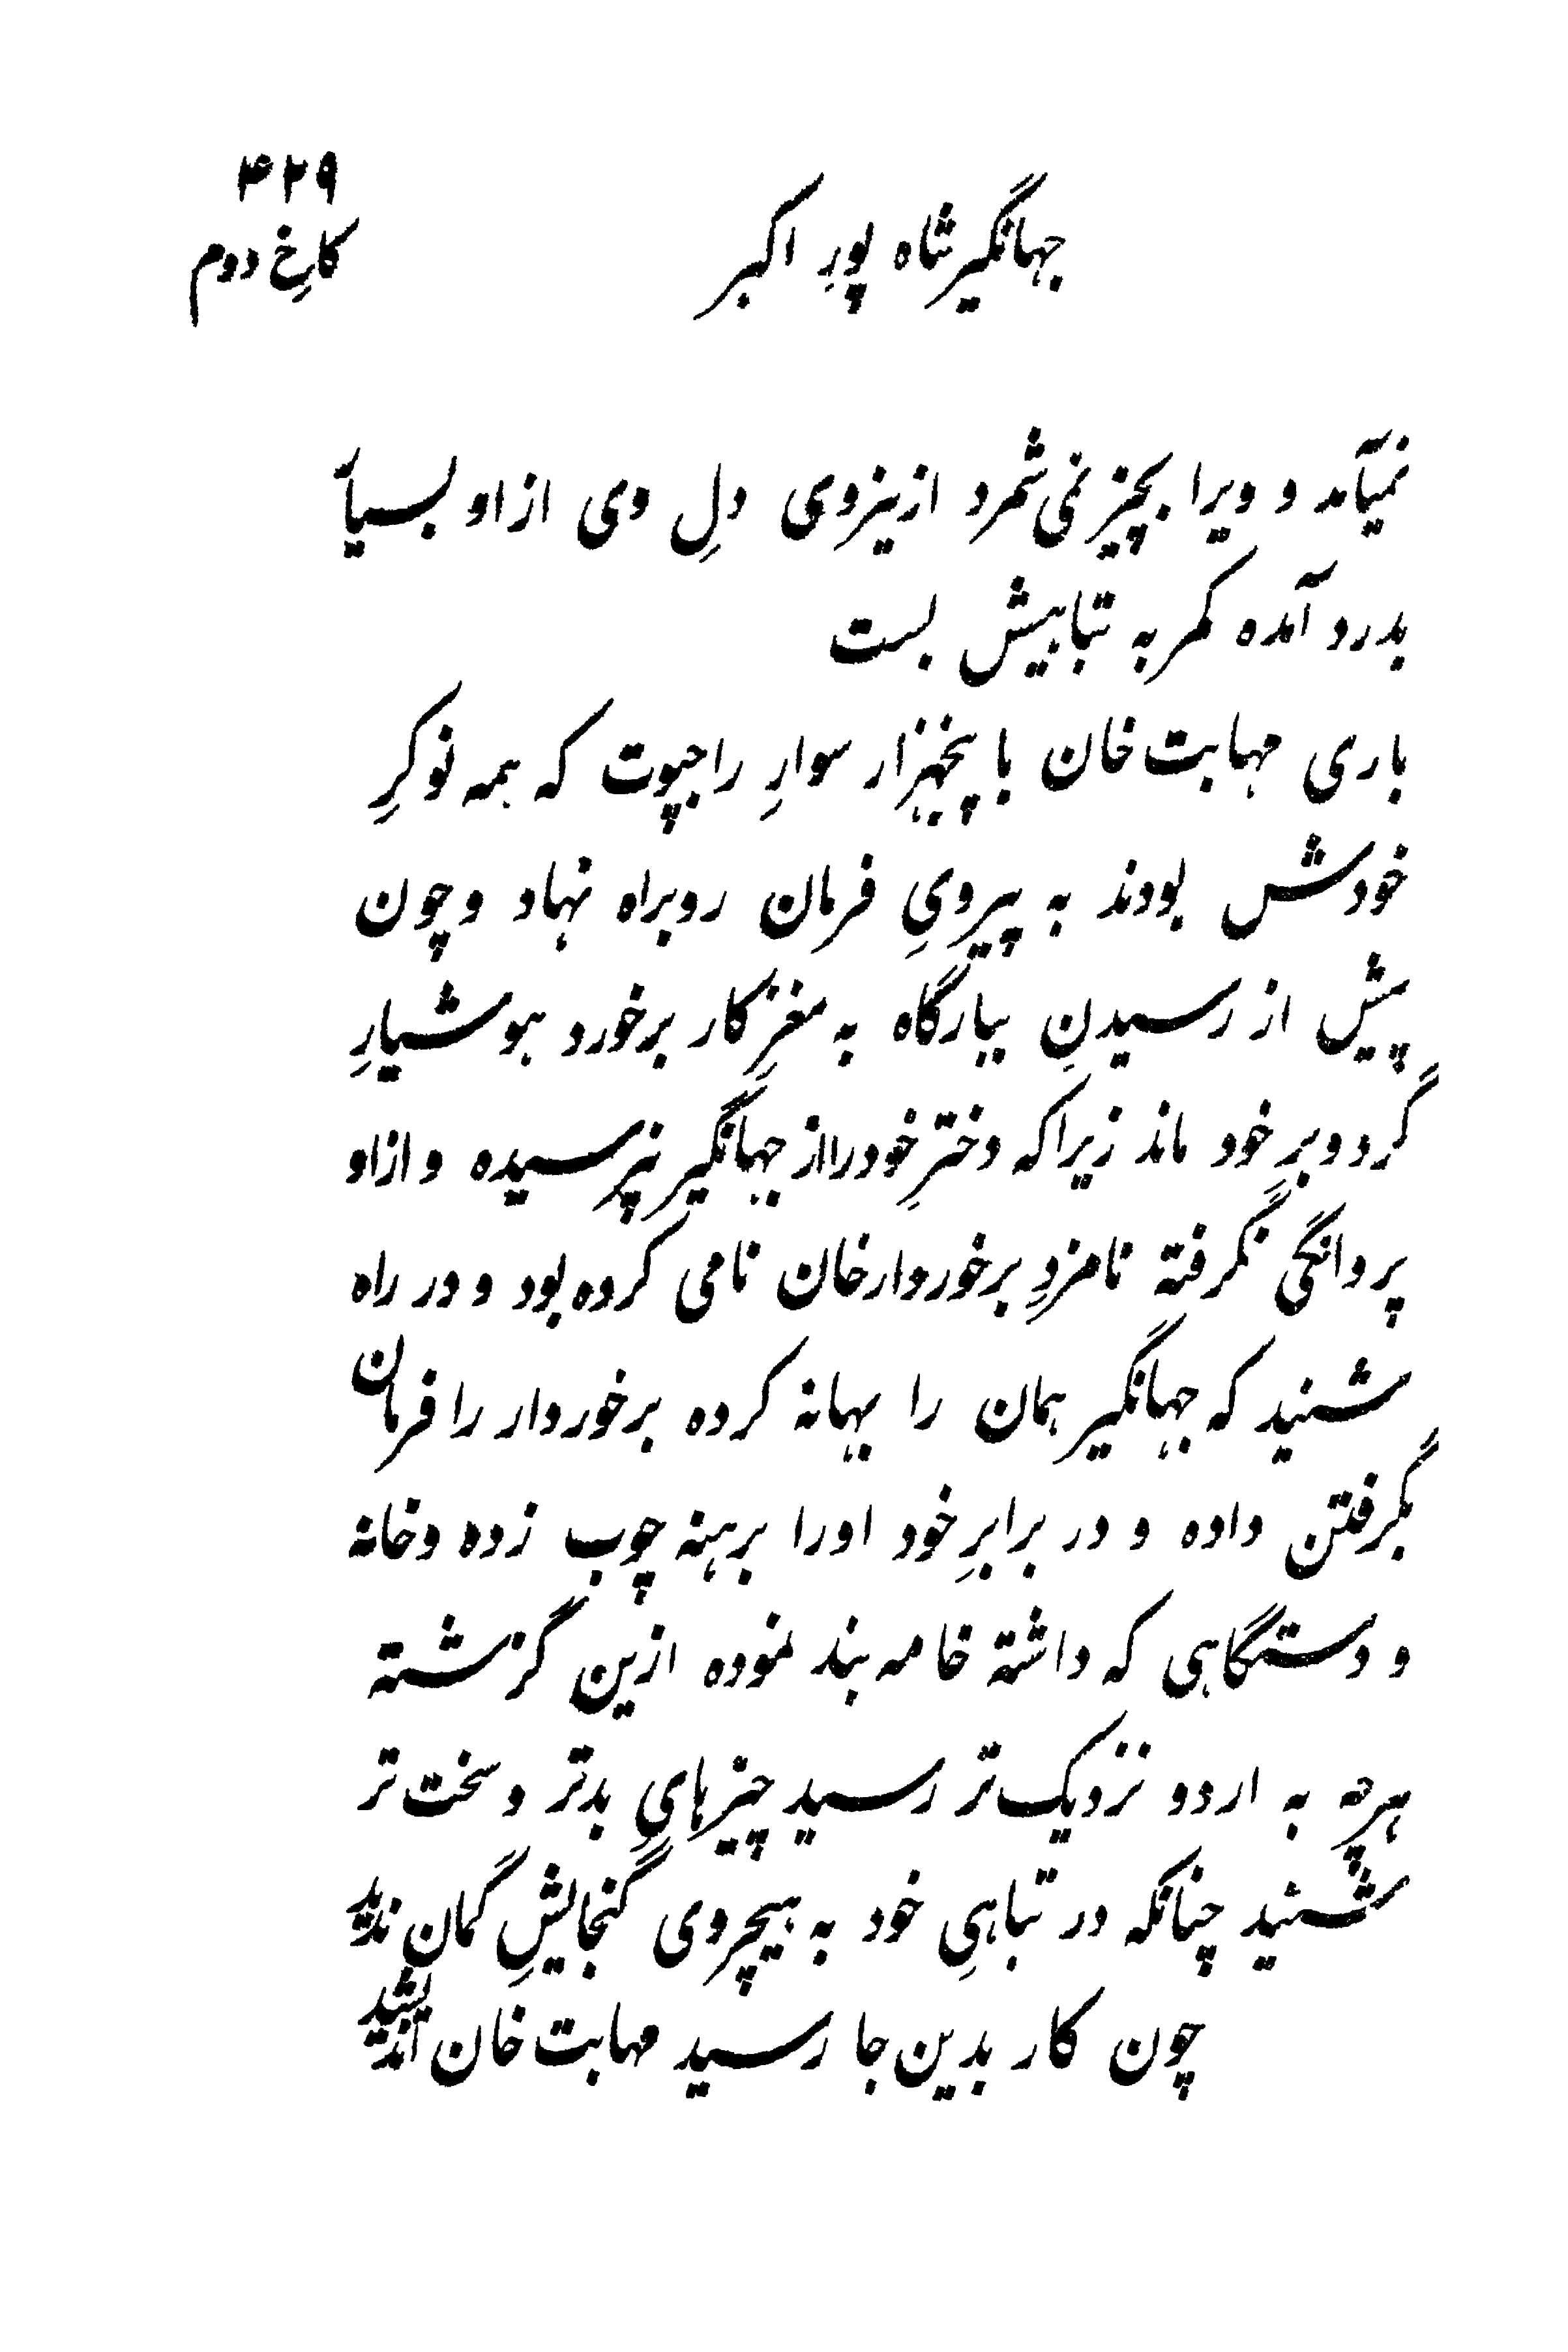 ۴۲۹
جهانگیر شاه پورِ اکبر
کاخِ دوم
نمیآمد و ویرا بچیز نمی شمرد ازینروی دلِ وی از او بسیار
بدرد آمده کمر به تباهیش بست
باری مهابت خان با پنجهزار سوارِ راجپوت که همه نوکرِ
خودش بودند به پیرویِ فرمان روبراه نهاد و چون
پیش از رسیدنِ ببارگاه به مغزِ کار برخورد هوشیارِ
گرد و برِ خود ماند زیرا که دخترِ خود را از جهانگیر نپرسیده و از او
پروانگی نگرفته نامزدِ برخوردار خان نامی کرده بود و در راه
شنید که جهانگیر همان را بهانه کرده برخوردار را فرمان
بگرفتن داده و در برابرِ خود اورا برهنه چوب زده و خانه
و دستگاهی که داشته خامه بند نموده ازین گزشته
هرچه به اردو نزدیک تر رسید چیزهایِ بدتر و سخت تر
شنید چنانکه در تباهیِ خود به هیچروی گنجایشِ گمان ندید
چون کار بدین جا رسید مهابت خان اندیشید